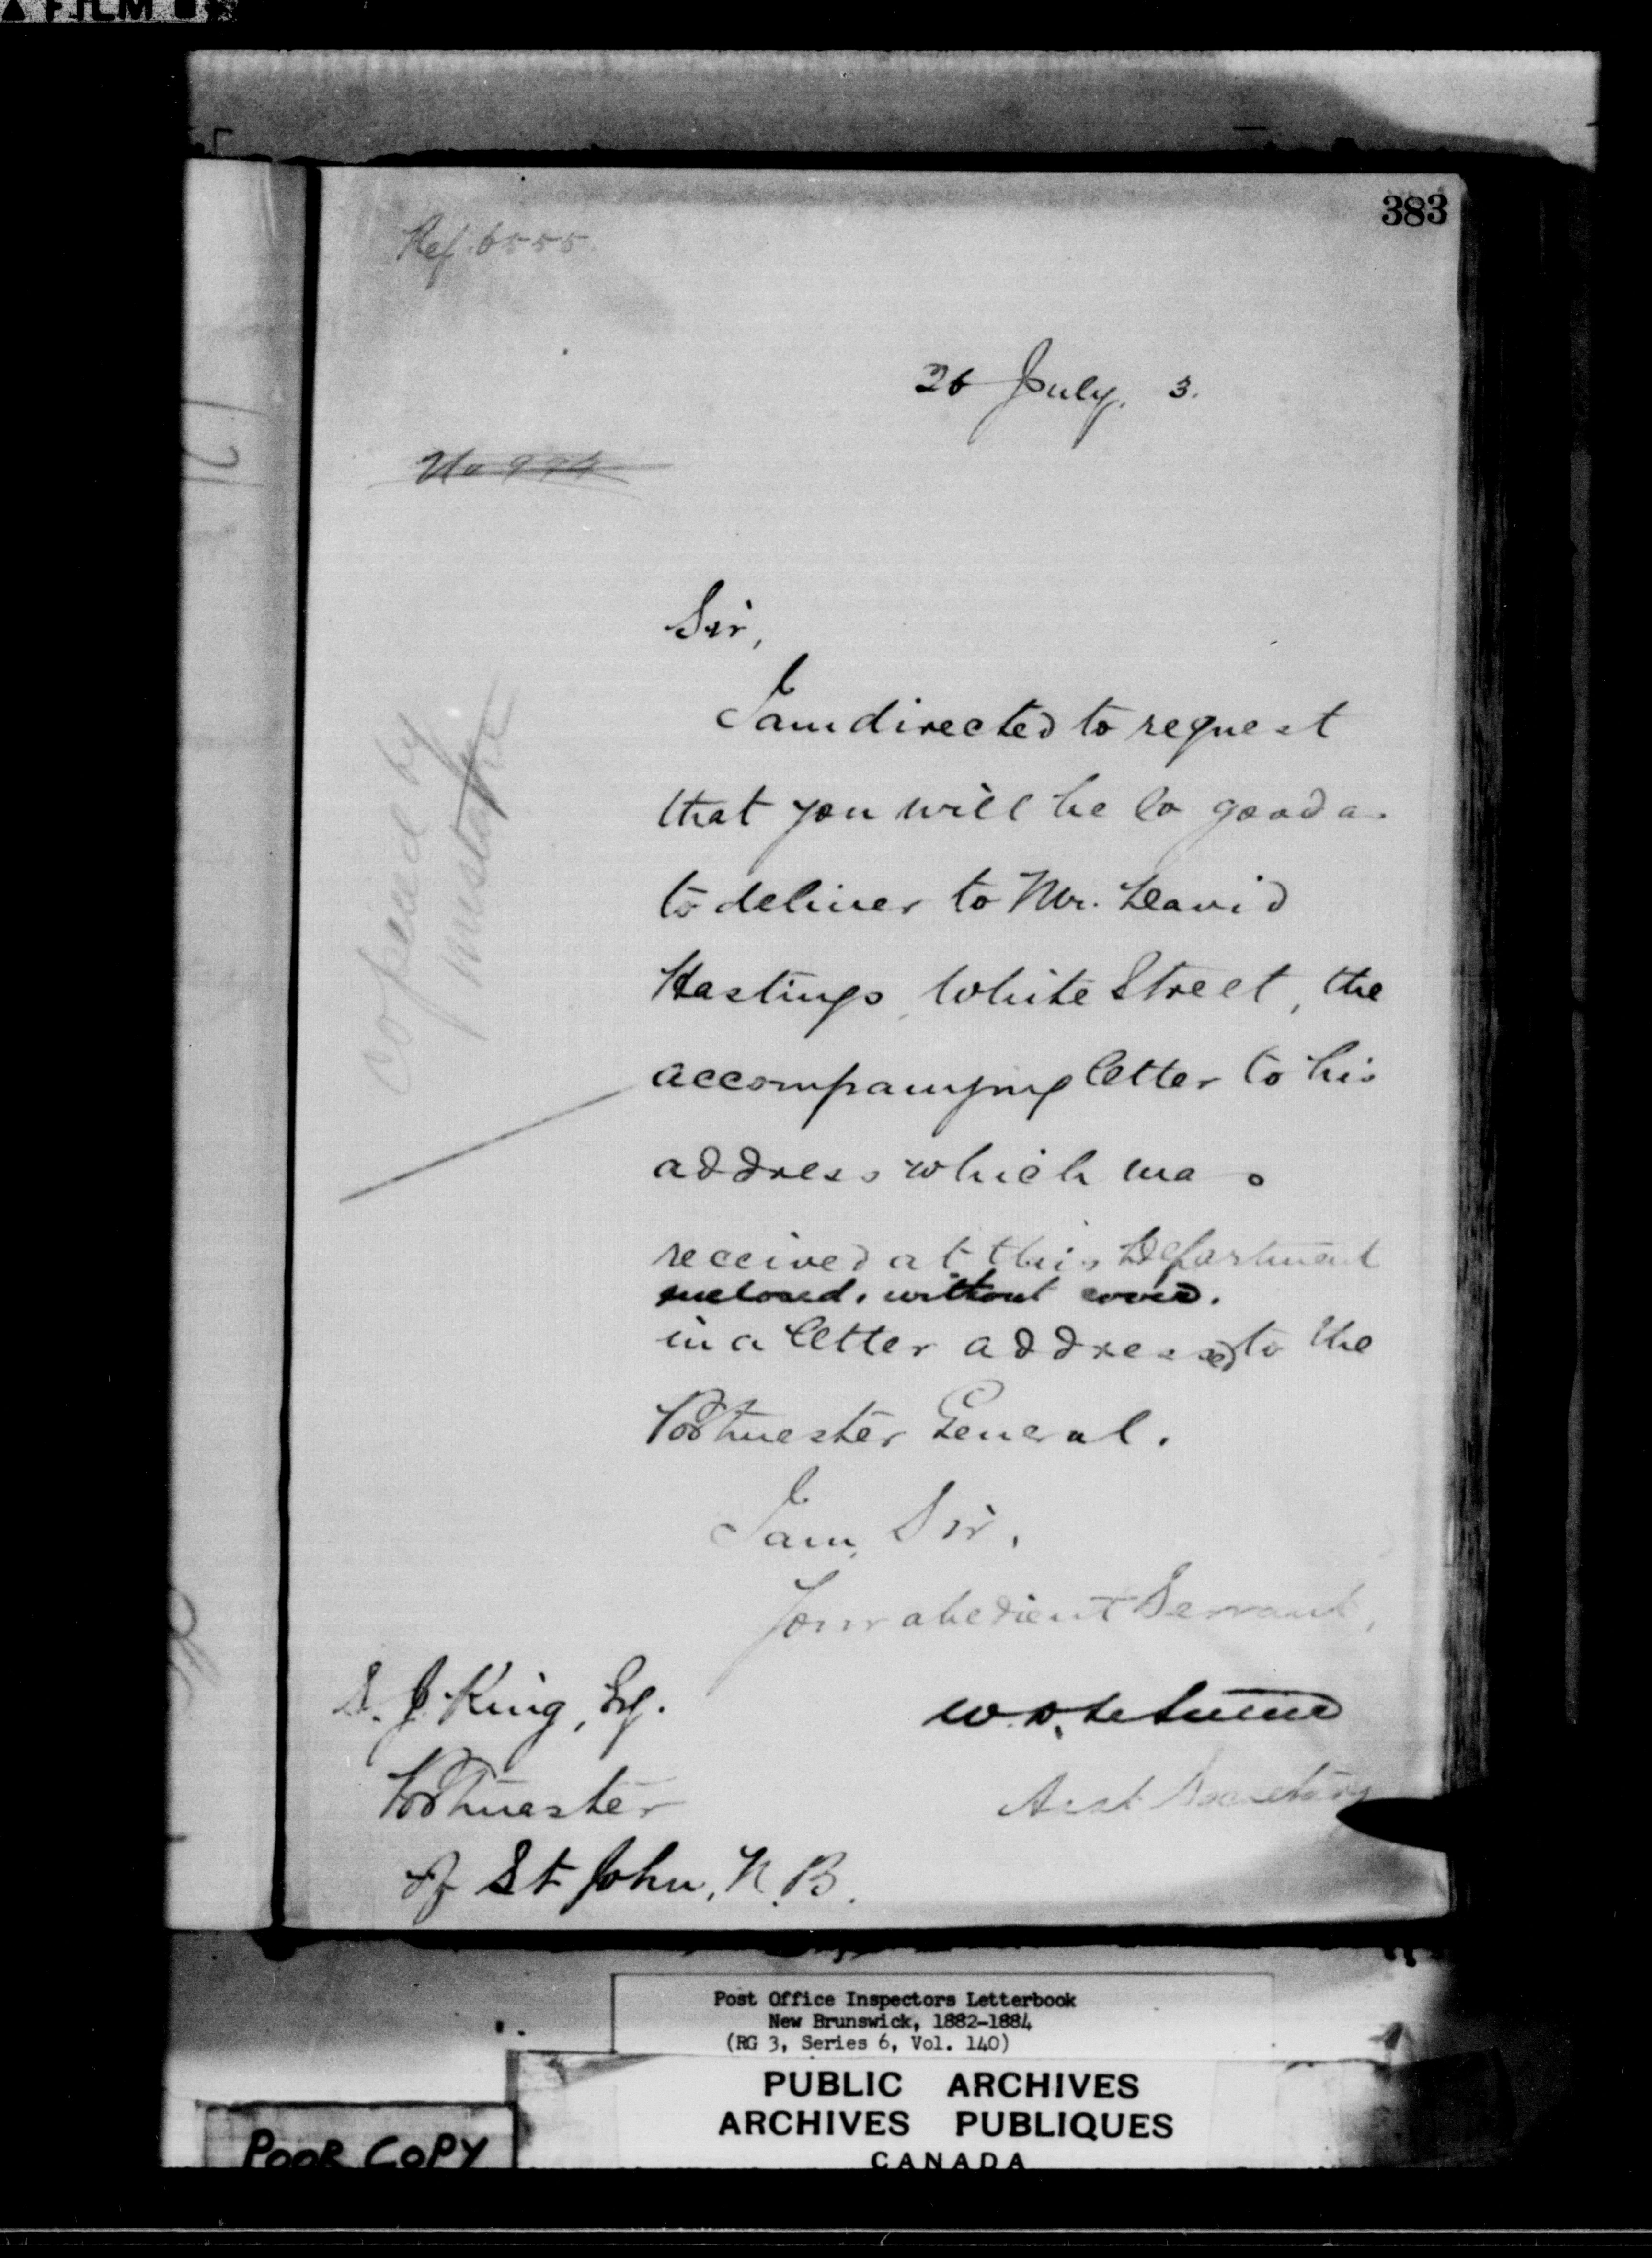 383
Ref. 6555
26 July. 3.
No 974
Sir,
I am directed to request
that you will be so good as
to deliver to Mr. David
Hastings, White Street, the
accompanying letter to his
address which was
received at this Department
enclosed, without cover.
in a letter addressed to the
Postmaster General.
I am, Sir,
Your obedient Servant,
Asst Secretary
S. J. King, Esq.
Postmaster
of St John, N.B.
copied by
mistake
Post Office Inspectors Letterbook
New Brunswick, 1882-1884
(RG 3, Series 6, Vol. 140)
PUBLIC ARCHIVES
ARCHIVES PUBLIQUES
CANADA
POOR COPY